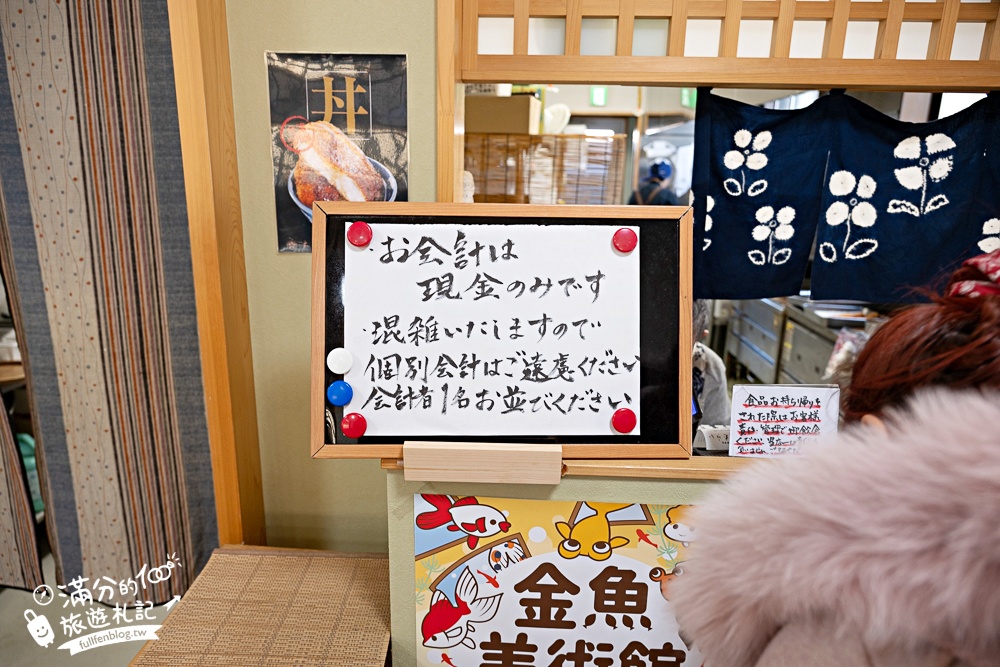 丼
・お会計は
現金のみです
・混雑いたしますので
個別会計はご遠慮ください
会計者1名お並びください
食品お持ち帰りを
された際はお客様
ください
金魚
美術館
満分的
旅遊札記
fullfenblog.tw